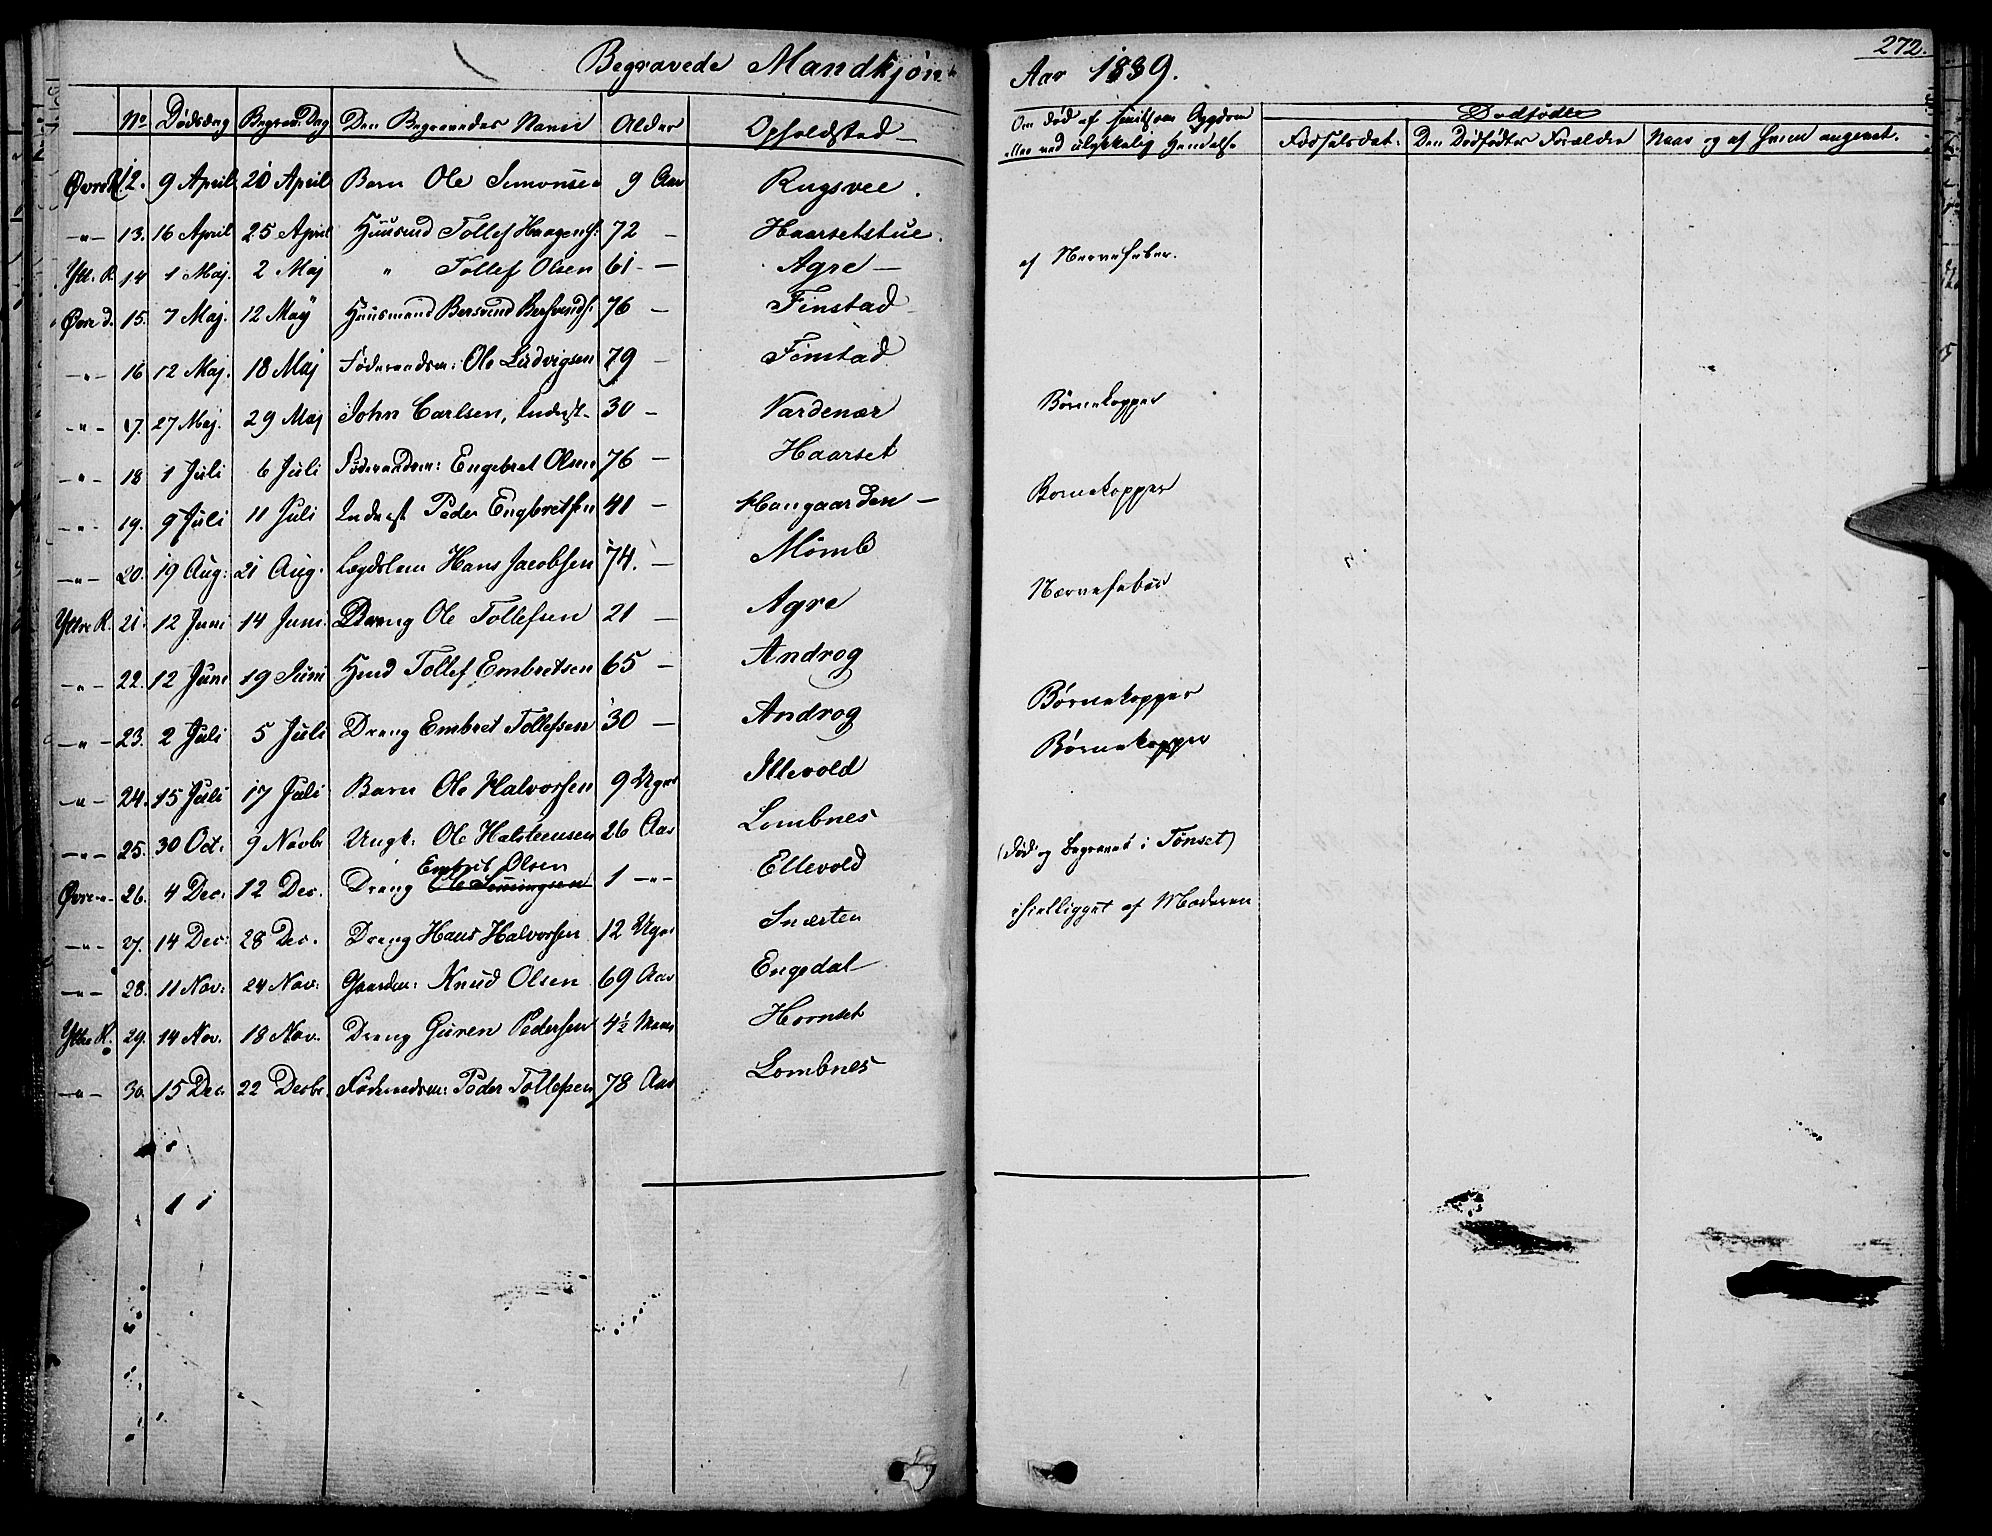 Begravede Mandkjøn
Aar 1839.
272.
No Dødsdag Begrav: Dag Den Begravedes Navn Alder Opholdsted
Om død af smitsom Sygdom eller ved ulykkelig Hændelse
Dødfødte
Fødselsdat. Den Dødfødtes Forældre Naar og af hvem angivet.
Øvre R. 12. 9 April 20 April Barn Ole Simonsen 9 Aar Rugsvee.
-"- 13. 16 April 25 April Huusmd Tollef Haagens: 72 — Haarsetstue.
Ytt. R. 14 1 Maj. 2 Maj " Tollef Olsen 61 — Agre — af Nervefeber.
Øvre d. 15. 7 Maj. 12 Maÿ Huusmand Bersvend Bersvends: 76 — Finstad
-"- 16 12 Maj. 18 Maj Føderaadsm: Ole Ludvigsen 79 — Finstad
-"- 17. 27 Maj. 29 Maj John Carlsen, Inderst 30 — Vardenær Børnekopper
-"- 18 1 Juli 6 Juli Føderaadsm: Engebret Olsen 76 — Haarset
-"- 19. 9 Juli 11 Juli Inderst Peder Engbretsen 41 — Haugaarden — Bornekopper
-"- 20. 19 Aug: 21 Aug. Lægdslem Hans Jacobsen 74. — Mømb
Yttre R. 21. 12 Juni 14 Juni Dreng Ole Tollefsen 21 — Agre Nervefeber
-"- 22. 12 Juni 19 Juni Hmd Tollef Embretsen 65 — Androg
-"- 23. 2 Juli 5 Juli Dreng Embret Tollefsen 30 — Androg Børnekopper
-"- 24. 15 Juli 17 Juli Barn Ole Halvorsen 9 Uger Illevold Børnekopper
-"- 25. 30 Oct. 9 Novbr Ungk: Ole Halsteensen 26 Aar Lombnes (død og begravet i Tønset)
Øvre -"- 26. 4 Dec. 12 Dec. Dreng Embret Olsen 1 -"- Ellevold
-"- 27. 14 Dec: 28 Dec. Dreng Hans Halvorsen 12 Uger Snerten ihielligget af Moderen
-"- 28. 11 Nov: 24 Nov: Gaardm: Knud Olsen 69 Aar Engedal
Yttre R. 29. 14 Nov. 18 Nov. Dreng Guren Pedersen 4½ Maan Hornset
-"- 30. 15 Dec. 22 Decbr. Føderaadsm: Peder Tollefsen 78 Aar Lombnes